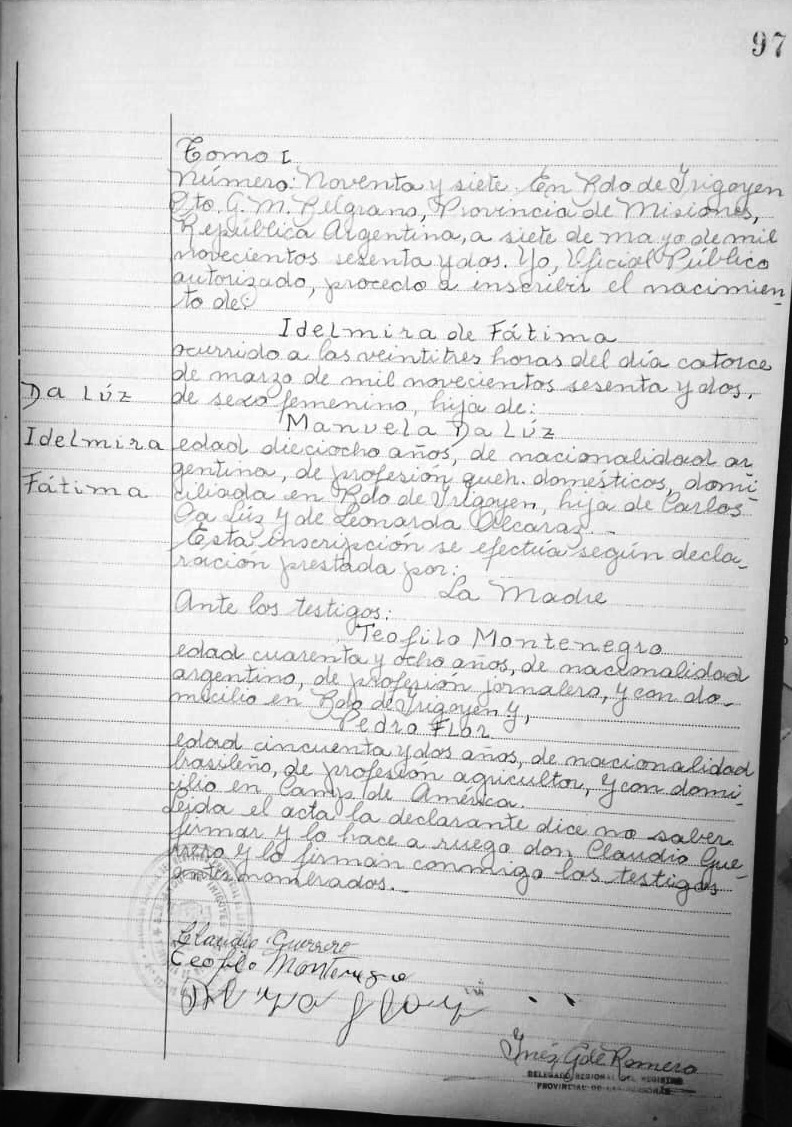 97
Tomo I
Número: Noventa y siete. En Bdo de Irigoyen
Dto. G. M. Belgrano, Provincia de Misiones,
República Argentina, a siete de mayo de mil
novecientos sesenta y dos. Yo, Oficial Público
autorizado, procedo a inscribir el nacimien-
to de:
Idelmira de Fátima
ocurrido a las veintitres horas del día catorce
de marzo de mil novecientos sesenta y dos,
Da Lúz
de sexo femenino, hija de:
Manuela Da Lúz
Idelmira
edad dieciocho años, de nacionalidad ar-
gentina, de profesión queh. domésticos, domi-
Fátima
ciliada en Bdo de Yrigoyen, hija de Carlos
Da Lúz y de Leonarda Alcaraz.-
Esta inscripción se efectúa según decla-
ración prestada por:
La Madre
Ante los testigos:
Teofilo Montenegro
edad cuarenta y ocho años, de nacionalidad
argentino, de profesión jornalero, y con do-
micilio en Bdo de Yrigoyen y,
Pedro Flor
edad cincuenta y dos años, de nacionalidad
brasileño, de profesión agricultor, y con domi-
cilio en Camp de América.
Leida el acta la declarante dice no saber
firmar y lo hace a ruego don Claudio Gue-
rrero y lo firman conmigo los testigos
antes nombrados.-
Claudio Guerrero
Teofilo Montenegro
Inés G de Romero
DELEGADO REGIONAL DEL REGISTRO
PROVINCIAL DE LAS PERSONAS